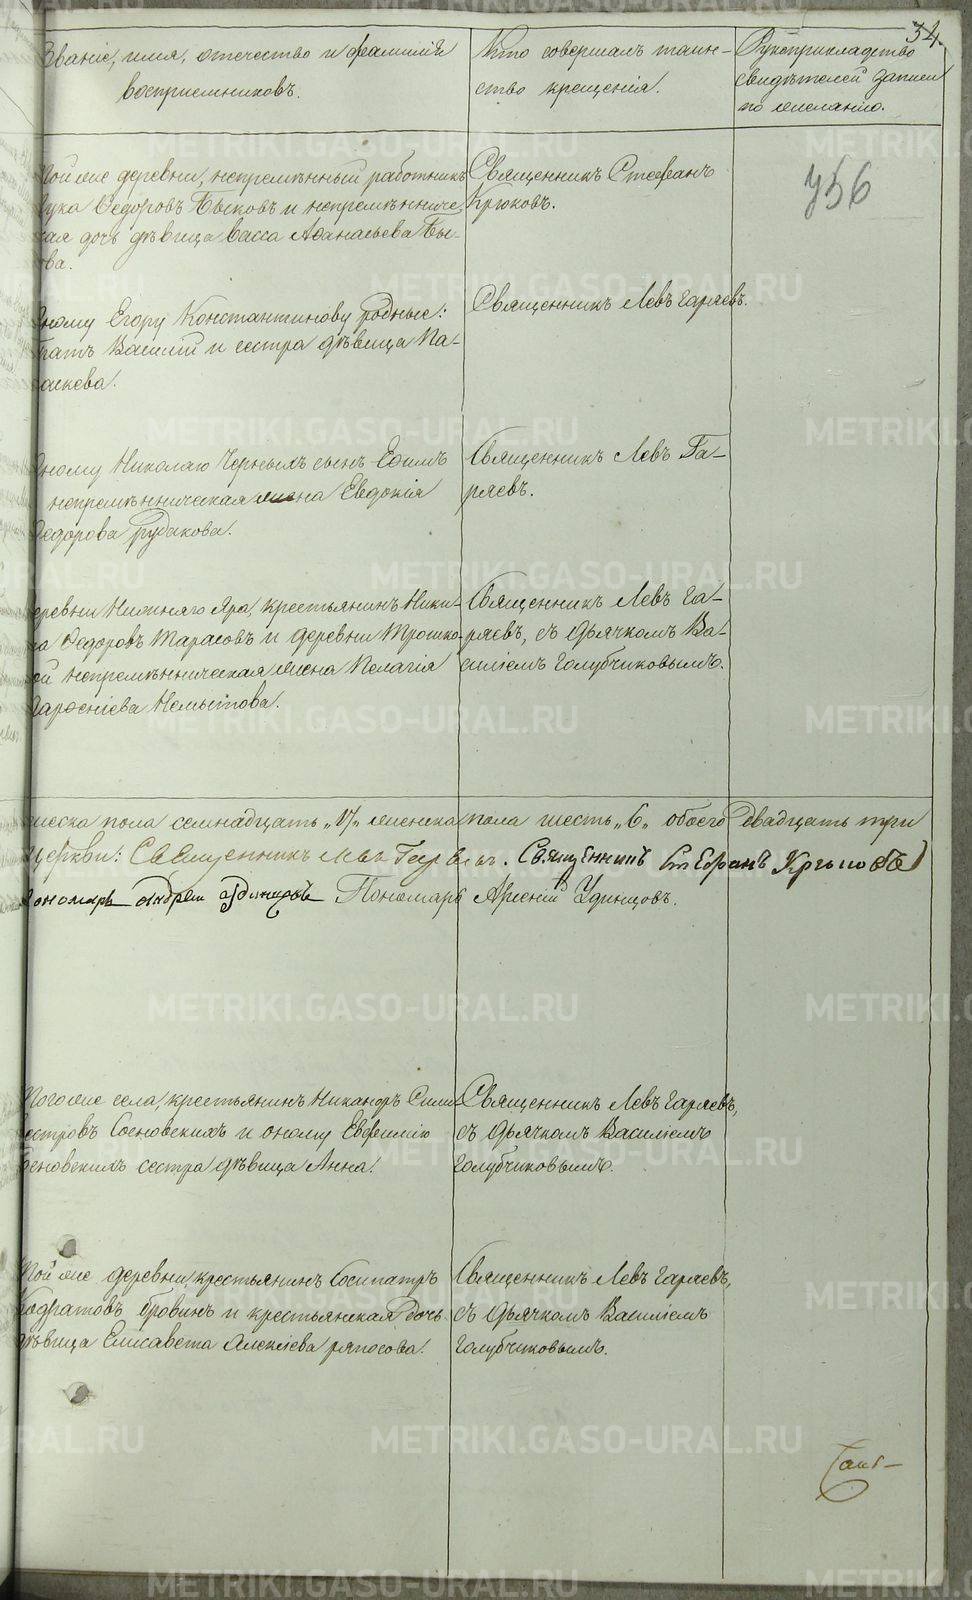 34.
Званіе, имя, отечество и фамилія
воспріемниковъ.
Кто совершалъ таин-
ство крещенія.
Рукоприкладство
свидѣтелей записи
по желанію.
756
Той же деревни, непремѣнный работникъ
Лука Ѳедоровъ Быковъ и непремѣнниче-
ская дочь дѣвица Васса Аѳанасьева Бы-
ова.
Священникъ Стефанъ
Крюковъ.
Оному Егору Константинову родные:
братъ Василій и сестра дѣвица Па-
раскева.
Священникъ Левъ Гаряевъ.
Оному Николаю Черныхъ сынъ Ефимъ
непремѣнническая жена Евдокія
Ѳедорова Рудакова.
Священникъ Левъ Га-
ряевъ.
Деревни Нижняго Яра, крестьянинъ Ники-
та Ѳедоровъ Тарасовъ и деревни Трошко-
вой непремѣнническая жена Пелагія
Парѳеніева Немытова.
Священникъ Левъ Га-
ряевъ, съ дьячкомъ Ва-
силіемъ Голубчиковымъ.
мужеска пола семнадцать „17„ женска пола шесть „6„ обоего двадцать три
церкви: Священникъ Левъ Гаряевъ. Священникъ Стефанъ Крюковъ
Пономарь Андрей Удинцовъ Пономарь Арсеній Удинцовъ.
Тогоже села, крестьянинъ Никаноръ Силь-
вестровъ Сосновскихъ и оному Евфимію
Сосновскихъ сестра дѣвица Анна.
Священникъ Левъ Гаряевъ,
съ дьячкомъ Василіемъ
Голубчиковымъ.
Той же деревни, крестьянинъ Сосипатръ
Кодратовъ Бровинъ и крестьянская дочь
дѣвица Елисавета Алексіева
Священникъ Левъ Гаряевъ,
съ дьячкомъ Василіемъ
Голубчиковымъ.
METRIKI.GASO-URAL.RU